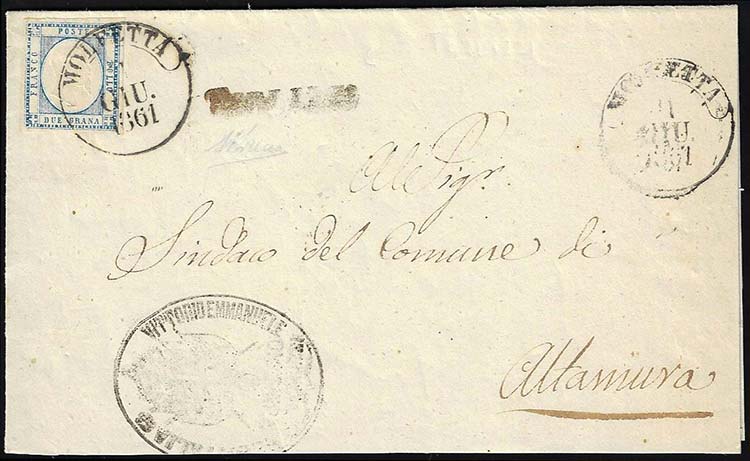 FRANCO
POSTE
DUE GRANA
MOLFETTA
1
GIU.
1861
MOLFETTA
GIU.
1861
Al Sigr.
Sindaco del Comune di
Altamura
VITTORIO EMMANUELE